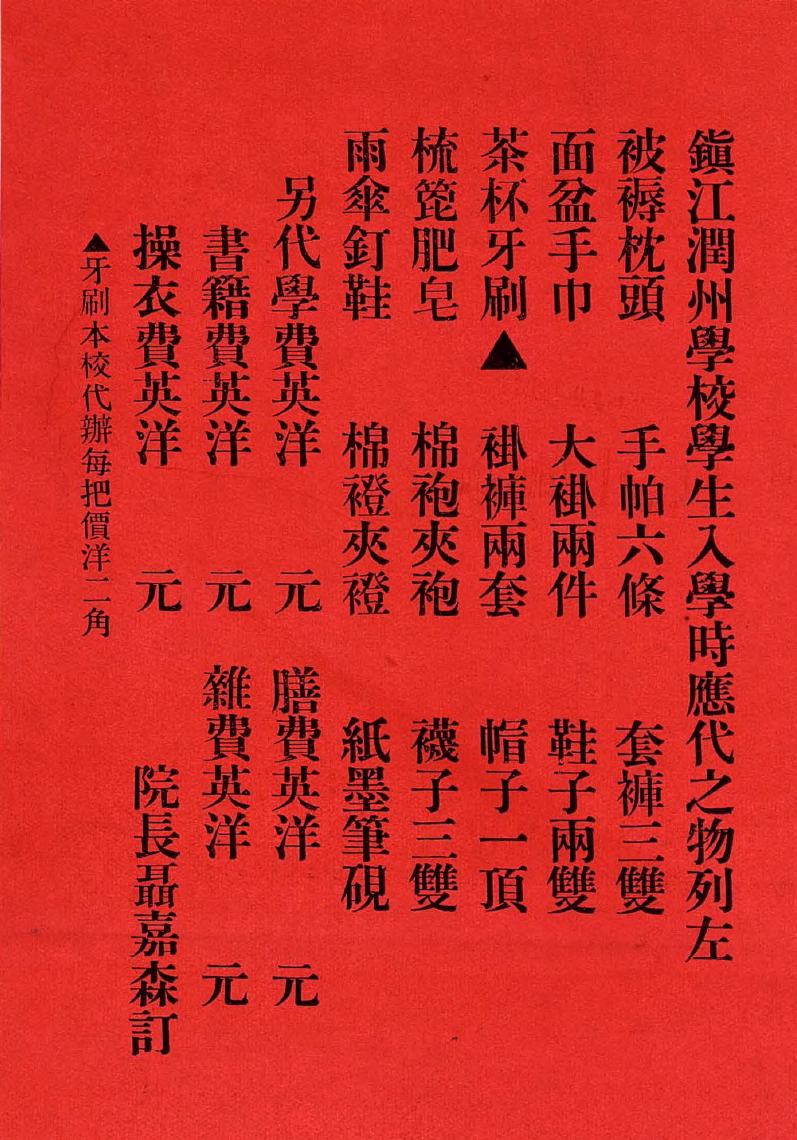 鎭江潤州學校學生入學時應代之物列左
被褥枕頭 手帕六條 套褲三雙
面盆手巾 大褂兩件 鞋子兩雙
茶杯牙刷▲ 褂褲兩套 帽子一頂
梳篦肥皂 棉袍夾袍 襪子三雙
雨傘釘鞋 棉襏夾襏 紙墨筆硯
另代學費英洋 元 膳費英洋 元
書籍費英洋 元 雜費英洋 元
操衣費英洋 元 院長聶嘉森訂
▲牙刷本校代辦每把價洋二角